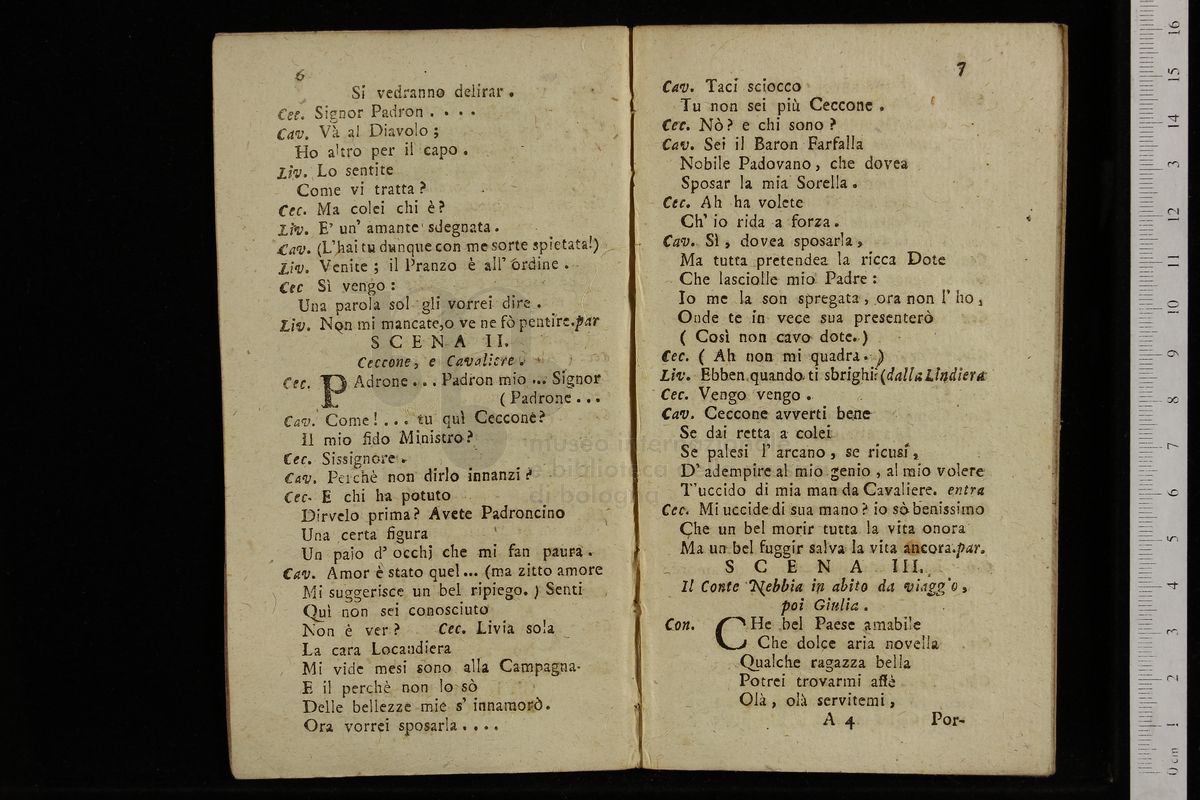 6
Si vedranno delirar .
Cec. Signor Padron . . . .
Cav. Và al Diavolo ;
Ho altro per il capo .
Liv. Lo sentite
Come vi tratta ?
Cec. Ma colei chi è ?
Liv. E' un' amante sdegnata .
Cav. (L'hai tu dunque con me sorte spietata!)
Liv. Venite ; il Pranzo è all' ordine .
Cec Sì vengo :
Una parola sol gli vorrei dire .
Liv. Non mi mancate,o ve ne fò pentire.par
S C E N A II.
Ceccone, e Cavaliere .
Cec. PAdrone . . . Padron mio ... Signor
( Padrone . . .
Cav. Come ! . . . tu quì Ceccone ?
Il mio fido Ministro ?
Cec. Sissignore .
Cav. Perchè non dirlo innanzi ?
Cec- E chi ha potuto
Dirvelo prima ? Avete Padroncino
Una certa figura
Un paio d' occhj che mi fan paura .
Cav. Amor è stato quel ... (ma zitto amore
Mi suggerisce un bel ripiego. ) Senti
Quì non sei conosciuto
Non è ver ? Cec. Livia sola
La cara Locandiera
Mi vide mesi sono alla Campagna.
E il perchè non lo sò
Delle bellezze mie s' innamorò.
Ora vorrei sposarla . . . .
7
Cav. Taci sciocco
Tu non sei più Ceccone .
Cec. Nò ? e chi sono ?
Cav. Sei il Baron Farfalla
Nobile Padovano , che dovea
Sposar la mia Sorella .
Cec. Ah ha volete
Ch' io rida a forza .
Cav. Sì , dovea sposarla ,
Ma tutta pretendea la ricca Dote
Che lasciolle mio Padre :
Io me la son spregata , ora non l' ho ,
Onde te in vece sua presenterò
( Così non cavo dote. )
Cec. ( Ah non mi quadra . )
Liv. Ebben quando ti sbrighi? (dalla Lindiera
Cec. Vengo vengo .
Cav. Ceccone avverti bene
Se dai retta a colei
Se palesi l' arcano , se ricusi ,
D' adempire al mio genio , al mio volere
T'uccido di mia man da Cavaliere. entra
Cec. Mi uccide di sua mano ? io sò benissimo
Che un bel morir tutta la vita onora
Ma un bel fuggir salva la vita ancora.par.
S C E N A III.
Il Conte Nebbia in abito da viagg'o ,
poi Giulia .
Con. CHe bel Paese amabile
Che dolce aria novella
Qualche ragazza bella
Potrei trovarmi affè
Olà , olà servitemi ,
A 4 Por-
museo internazionale
e biblioteca della musica
di bologna
0 cm 1 2 3 4 5 6 7 8 9 10 11 12 13 14 15 16